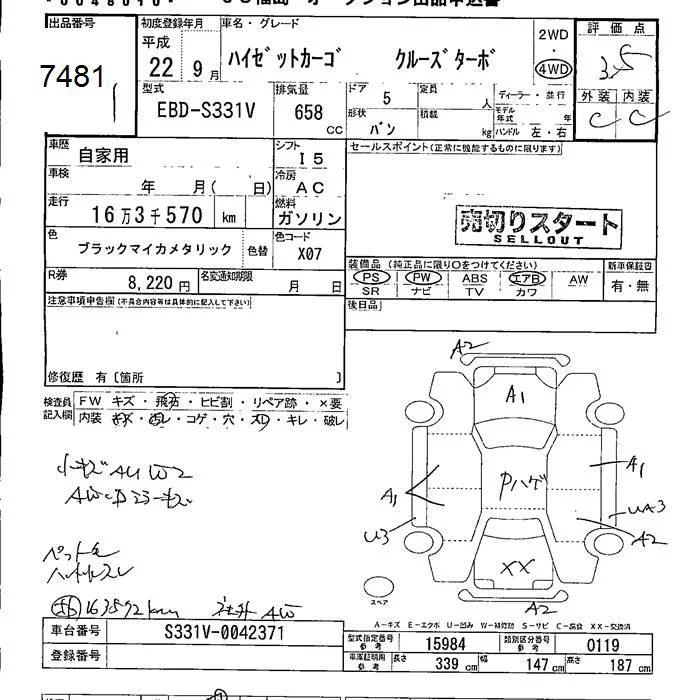 出品番号 初度登録年月 車名・グレード 評価点
平成 2WD
7481 22年 9月 ハイゼットカーゴ クルーズターボ 4WD 3.5
型式 排気量 ドア 5 定員 人 ディーラー・並行 外装 内装
EBD-S331V 658 CC 形状 バン 積載 kg モデル年式 年 C C
ハンドル 左・右
車歴 自家用 シフト I5 セールスポイント(正常に機能するものに限ります)
車検 年 月( 日) 冷房 AC
走行 16万3千570 km 燃料 ガソリン 売切りスタート
SELLOUT
色 ブラックマイカメタリック 色替 色コード X07
装備品 (純正品に限り○をつけてください) 新車保証書
R券 8,220円 名変通知期限 月 日 PS PW ABS エアB AW 有・無
SR ナビ TV カワ
注意事項申告欄(不具合内容等は具体的に記入して下さい) 後日品
修復歴 有〔箇所 〕
検査員記入欄 FW キズ・飛石・ヒビ割・リペア跡・×要
内装 キズ・汚レ・コゲ・穴・スレ・キレ・破レ
A2
A1
A1
Pハゲ
A1
UA3
U3
A2
XX
A2
小キズ AU W2
ペット毛
スペア
163592km 社外 AW
A-キズ E-エクボ U-凹み W-補修跡 S-サビ C-腐食 XX-交換済
車台番号 S331V-0042371 型式指定番号 参考 15984 類別区分番号 参考 0119
登録番号 車庫証明用 参考 長さ 339 cm 幅 147 cm 高さ 187 cm